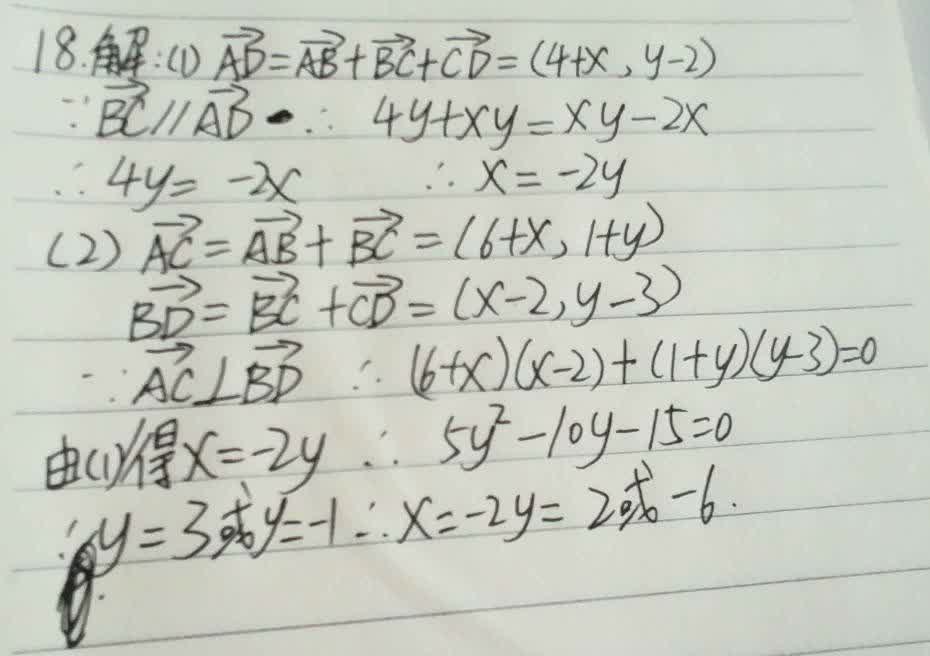 18.解:(1) AD→=AB→+BC→+CD→=(4+x,y-2)
∵BC→//AD→ ∴ 4y+xy=xy-2x
∴ 4y= -2x ∴ x=-2y
(2) AC→=AB→+BC→=(6+x,1+y)
BD→=BC→+CD→=(x-2,y-3)
∵AC→⊥BD→ ∴ (6+x)(x-2)+(1+y)(y-3)=0
由(1)得x=-2y ∴ 5y²-10y-15=0
∴y=3或y=-1∴x=-2y=2或-6.